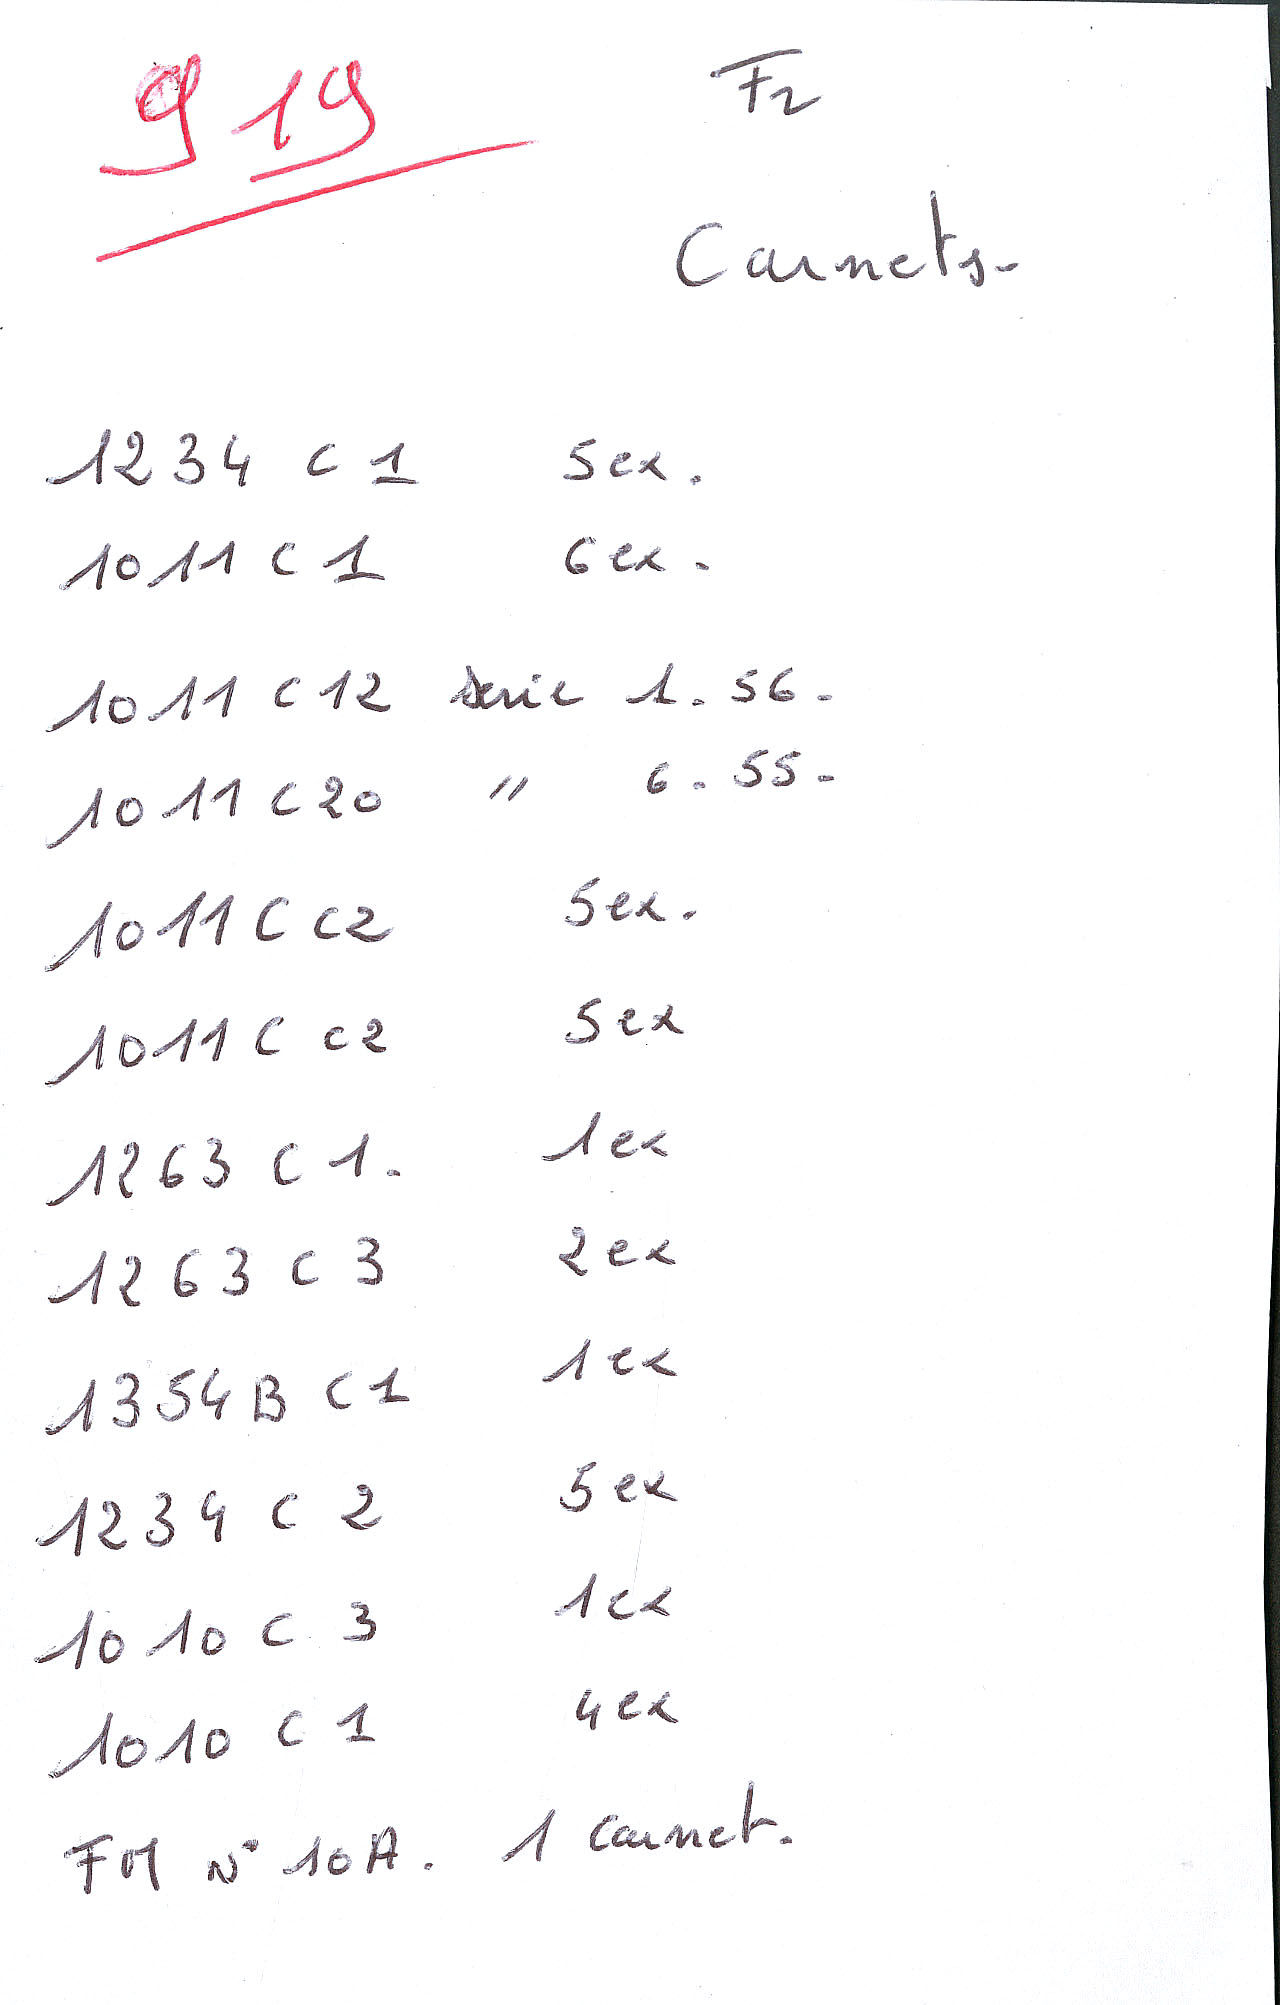 919 Fr
Carnets-
1234 C 1 5 ex.
1011 C 1 6 ex.
1011 C 12 Serie 1. 56-
1011 C 20 " 6. 55-
1011 C C2 5 ex.
1011 C C2 5 ex
1263 C 1. 1 ex
1263 C 3 2 ex
1354 B C 1 1 ex
1234 C 2 5 ex
1010 C 3 1 ex
1010 C 1 4 ex
FM N° 10A. 1 carnet.